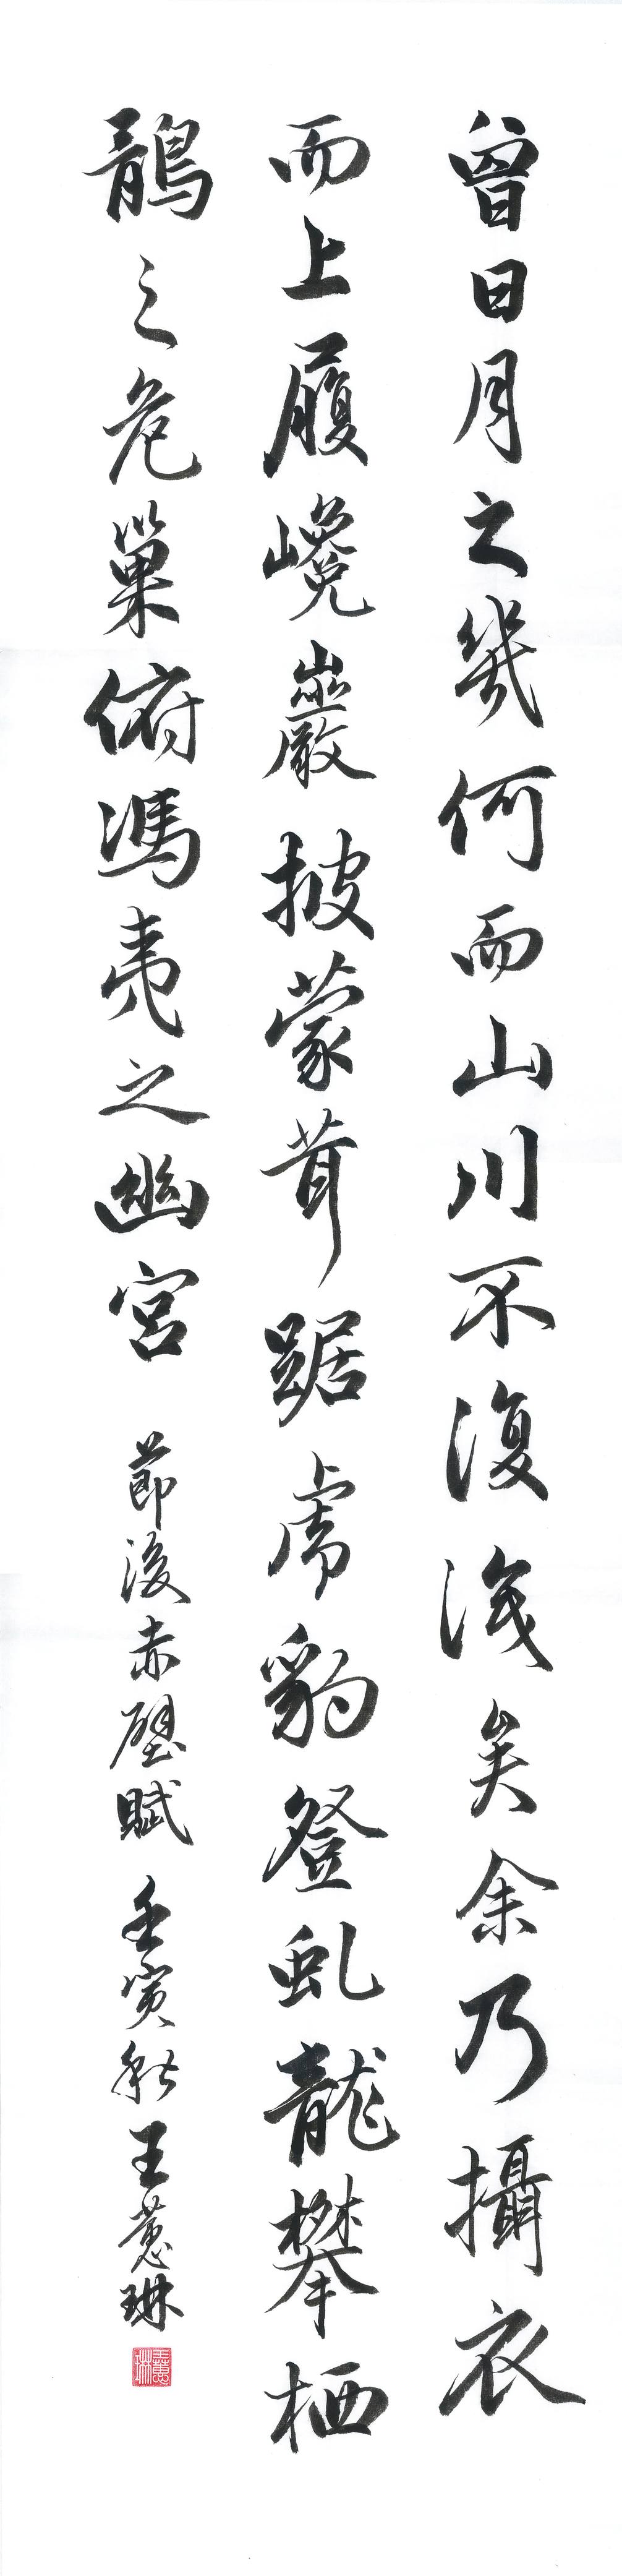 曾日月之幾何而山川不復識矣余乃攝衣
而上履巉巖披蒙茸踞虎豹登虬龍攀栖
鶻之危巢俯馮夷之幽宮 節後赤壁賦 壬寅秋王蕙琳
王蕙琳